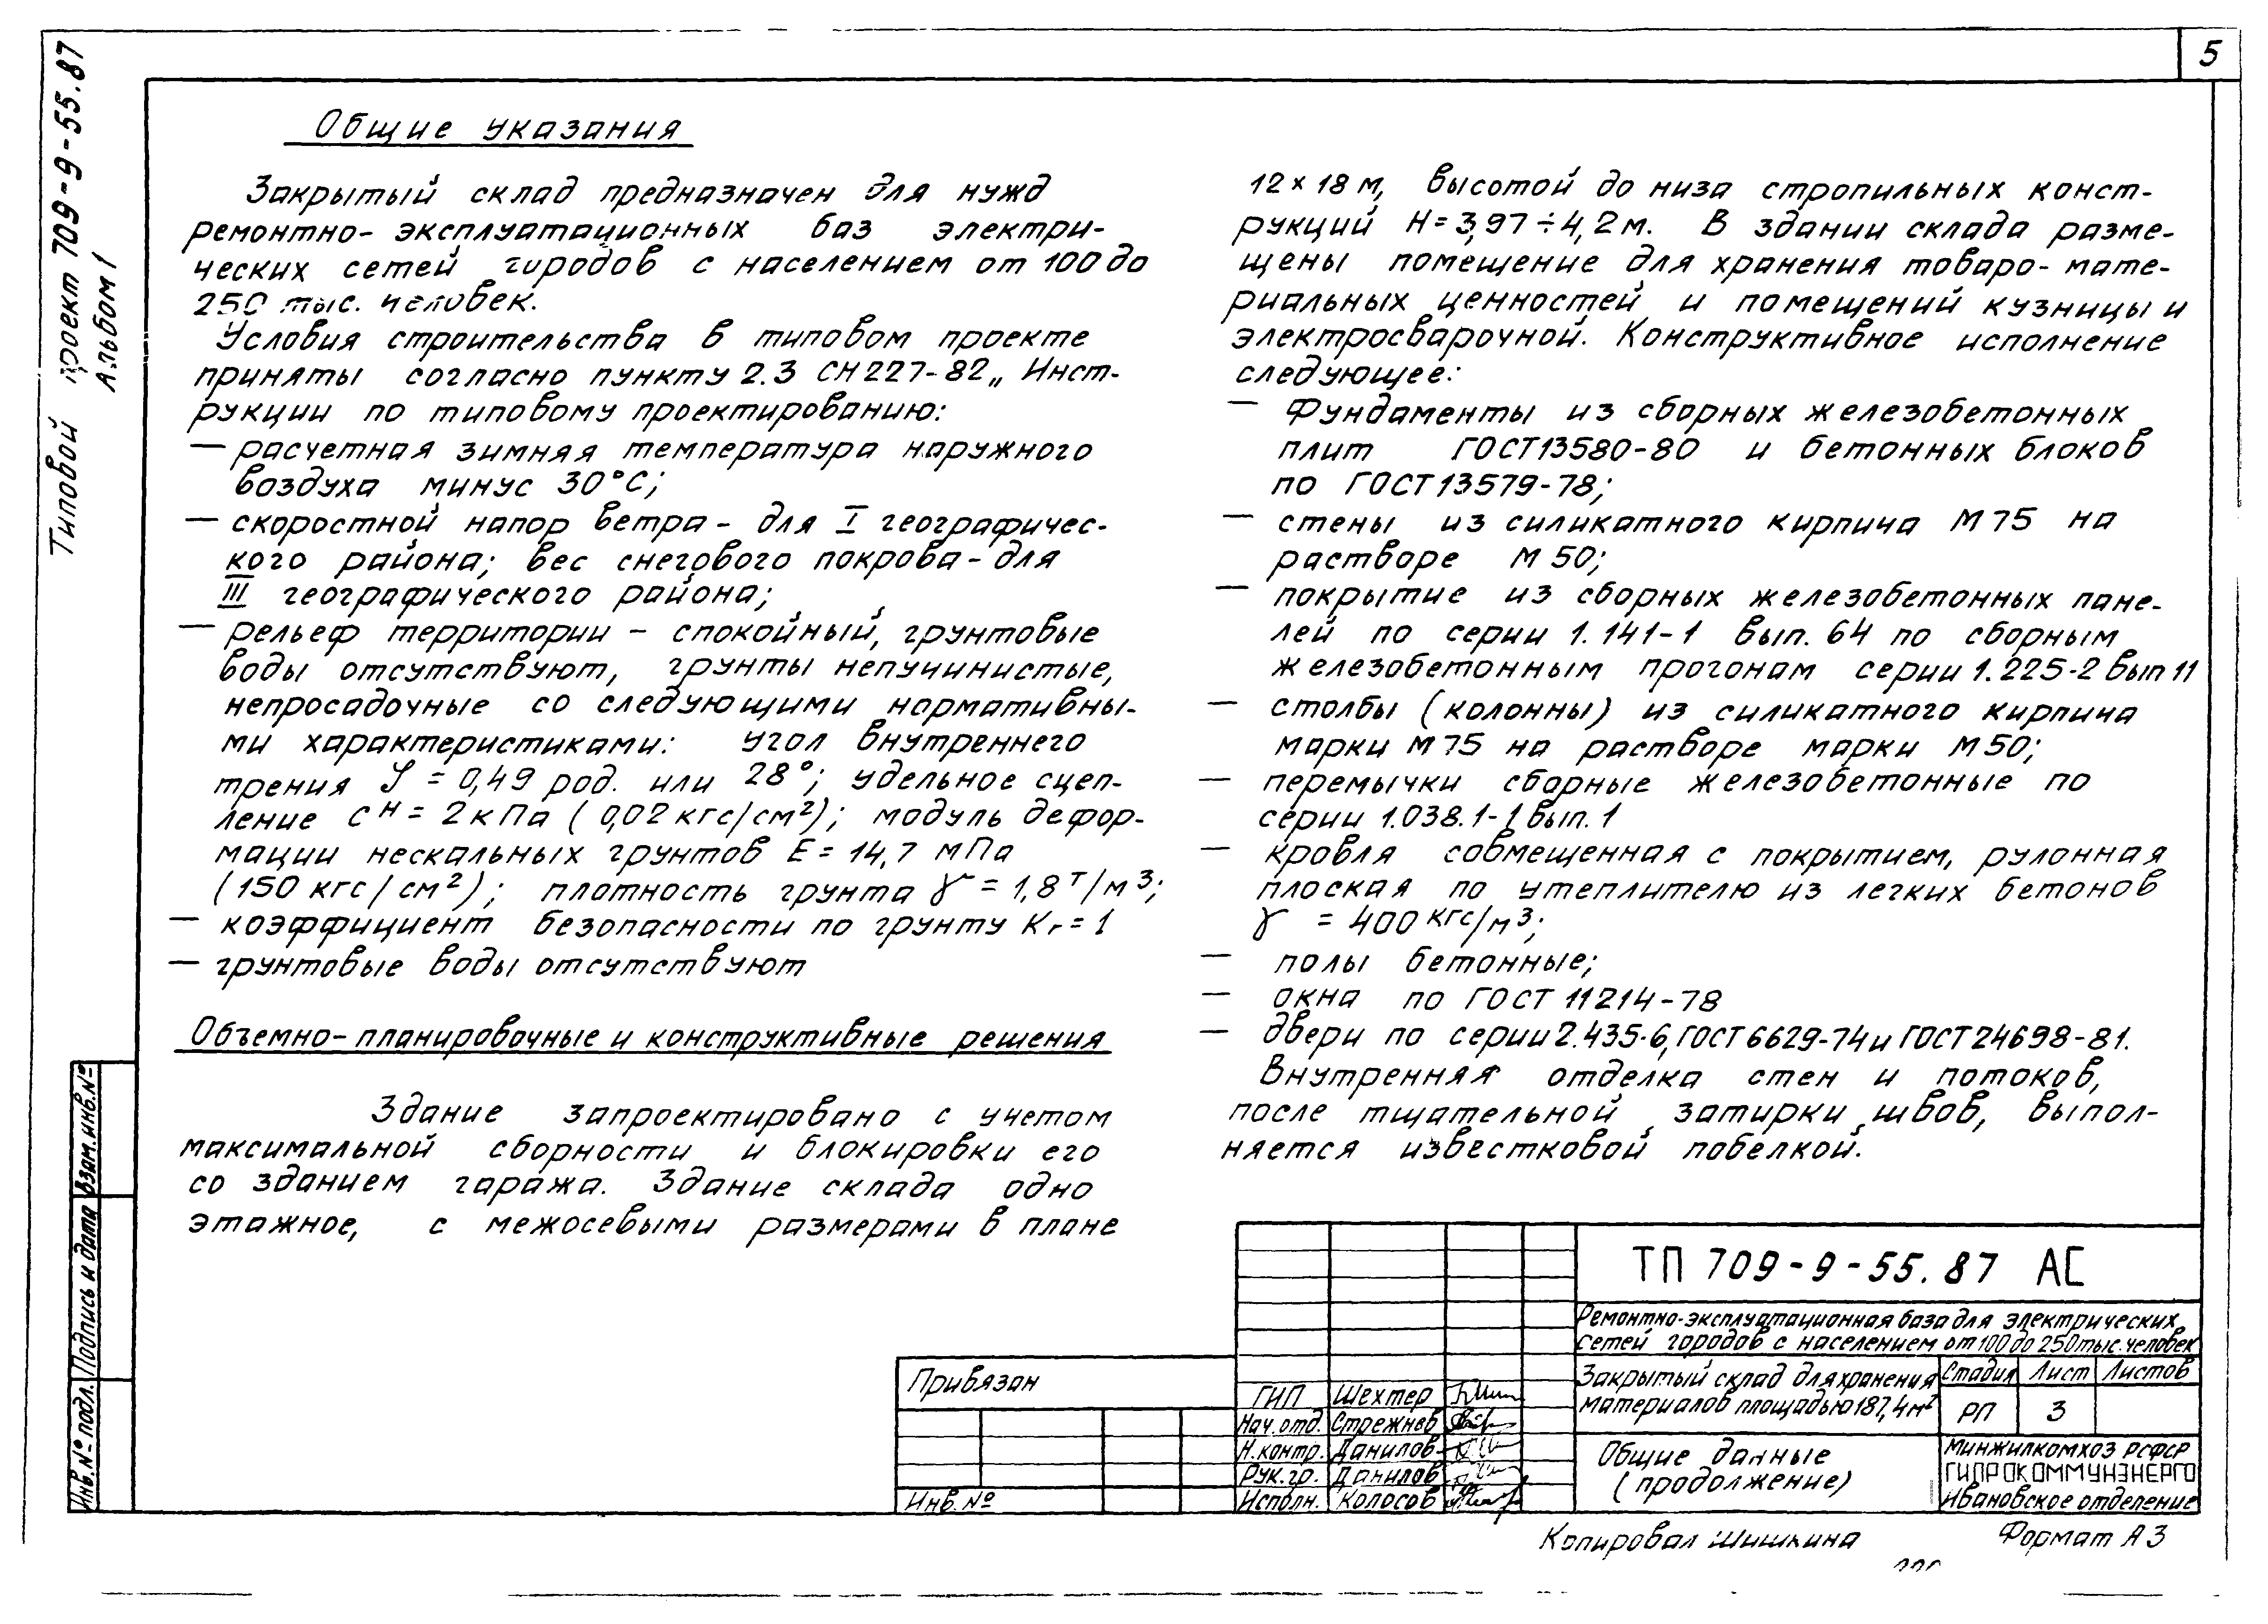 5
Типовой проект 709-9-55.87
Альбом 1
Общие указания
Закрытый склад предназначен для нужд
ремонтно-эксплуатационных баз электри-
ческих сетей городов с населением от 100 до
250 тыс. человек.
Условия строительства в типовом проекте
приняты согласно пункту 2.3 СН 227-82 „Инст-
рукции по типовому проектированию:
— расчетная зимняя температура наружного
воздуха минус 30°С;
— скоростной напор ветра - для I географичес-
кого района; вес снегового покрова - для
III географического района;
— рельеф территории - спокойный, грунтовые
воды отсутствуют, грунты непучинистые,
непросадочные со следующими нормативны-
ми характеристиками: угол внутреннего
трения φ = 0,49 род. или 28°; удельное сцеп-
ление Сᴴ = 2 кПа (0,02 кгс/см²); модуль дефор-
мации нескальных грунтов Е = 14,7 мПа
(150 кгс/см²); плотность грунта γ = 1,8 т/м³;
— коэффициент безопасности по грунту Кг = 1
— грунтовые воды отсутствуют
Объемно-планировочные и конструктивные решения
Здание запроектировано с учетом
максимальной сборности и блокировки его
со зданием гаража. Здание склада одно
этажное, с межосевыми размерами в плане
12 × 18 м, высотой до низа стропильных конст-
рукций Н = 3,97 ÷ 4,2 м. В здании склада разме-
щены помещение для хранения товаро-мате-
риальных ценностей и помещений кузницы и
электросварочной. Конструктивное исполнение
следующее:
— фундаменты из сборных железобетонных
плит ГОСТ 13580-80 и бетонных блоков
по ГОСТ 13579-78;
— стены из силикатного кирпича М 75 на
растворе М 50;
— покрытие из сборных железобетонных пане-
лей по серии 1.141-1 вып. 64 по сборным
железобетонным прогонам серии 1.225-2 вып 11
— столбы (колонны) из силикатного кирпича
марки М 75 на растворе марки М 50;
— перемычки сборные железобетонные по
серии 1.038.1-1 вып. 1
— кровля совмещенная с покрытием, рулонная
плоская по утеплителю из легких бетонов
γ = 400 кгс/м³;
— полы бетонные;
— окна по ГОСТ 11214-78
— двери по серии 2.435-6, ГОСТ 6629-74 и ГОСТ 24698-81.
Внутренняя отделка стен и потоков,
после тщательной затирки швов, выпол-
няется известковой побелкой.
Взам. инв. №
Подпись и дата
Инв. № подл.
Привязан
Инв. №
ГИП Шехтер
Нач. отд. Стрежнев
Н. контр. Данилов
Рук. гр. Данилов
Исполн. Колосов
ТП 709-9-55.87 АС
Ремонтно-эксплуатационная база для электрических
сетей городов с населением от 100 до 250 тыс. человек
Закрытый склад для хранения
материалов площадью 187,4 м²
Стадия Лист Листов
РП 3
Общие данные
(продолжение)
Минжилкомхоз РСФСР
ГИПРОКОММУНЭНЕРГО
Ивановское отделение
Копировал Шишкина
Формат А3